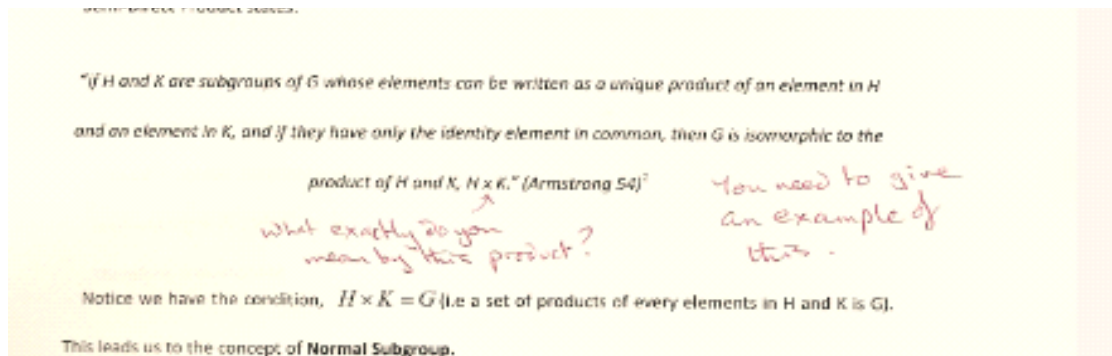 "if H and K are subgroups of G whose elements can be written as a unique product of an element in H
and an element in K, and if they have only the identity element in common, then G is isomorphic to the
product of H and K, H x K." (Armstrong 54)²
You need to give
an example of
this.
What exactly do you
mean by this product?
Notice we have the condition, H × K = G (i.e a set of products of every elements in H and K is G).
This leads us to the concept of Normal Subgroup.